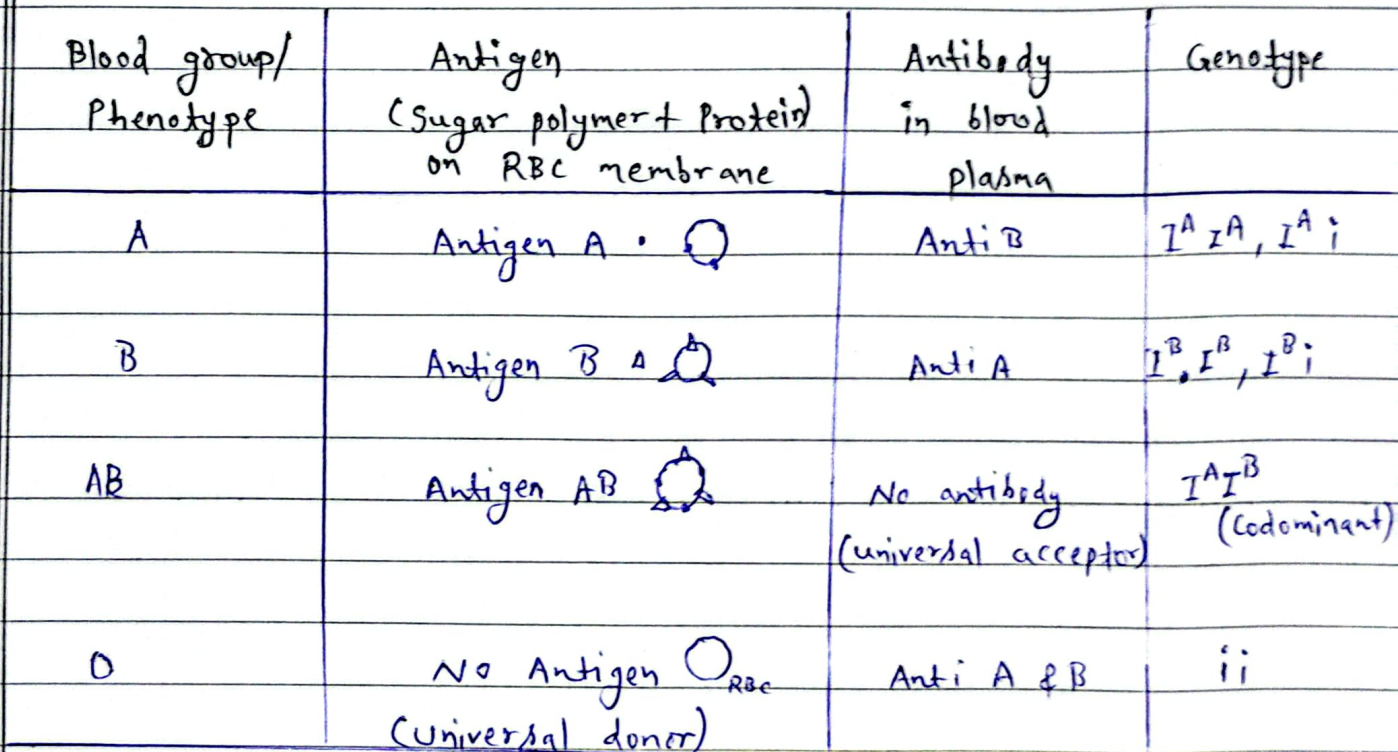 Blood group/ Phenotype | Antigen (Sugar polymer + Protein) on RBC membrane | Antibody in blood plasma | Genotype
A | Antigen A | Anti B | Iᴬ Iᴬ, Iᴬ i
B | Antigen B | Anti A | Iᴮ Iᴮ, Iᴮ i
AB | Antigen AB | No antibody (universal acceptor) | IᴬIᴮ (Codominant)
O | No Antigen RBC (Universal donor) | Anti A & B | ii